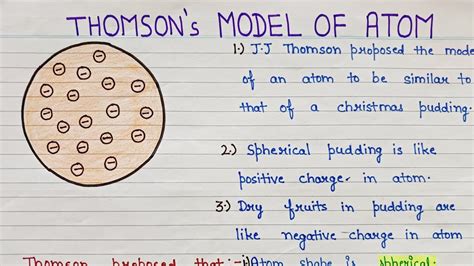 THOMSON's MODEL OF ATOM
1.) J.J Thomson proposed the mode
of an atom to be similar to
that of a christmas pudding.
2.) Spherical pudding is like
positive charge in atom.
3.) Dry fruits in pudding are
like negative charge in atom
Thomson proposed that:- i) Atom shape is spherical.